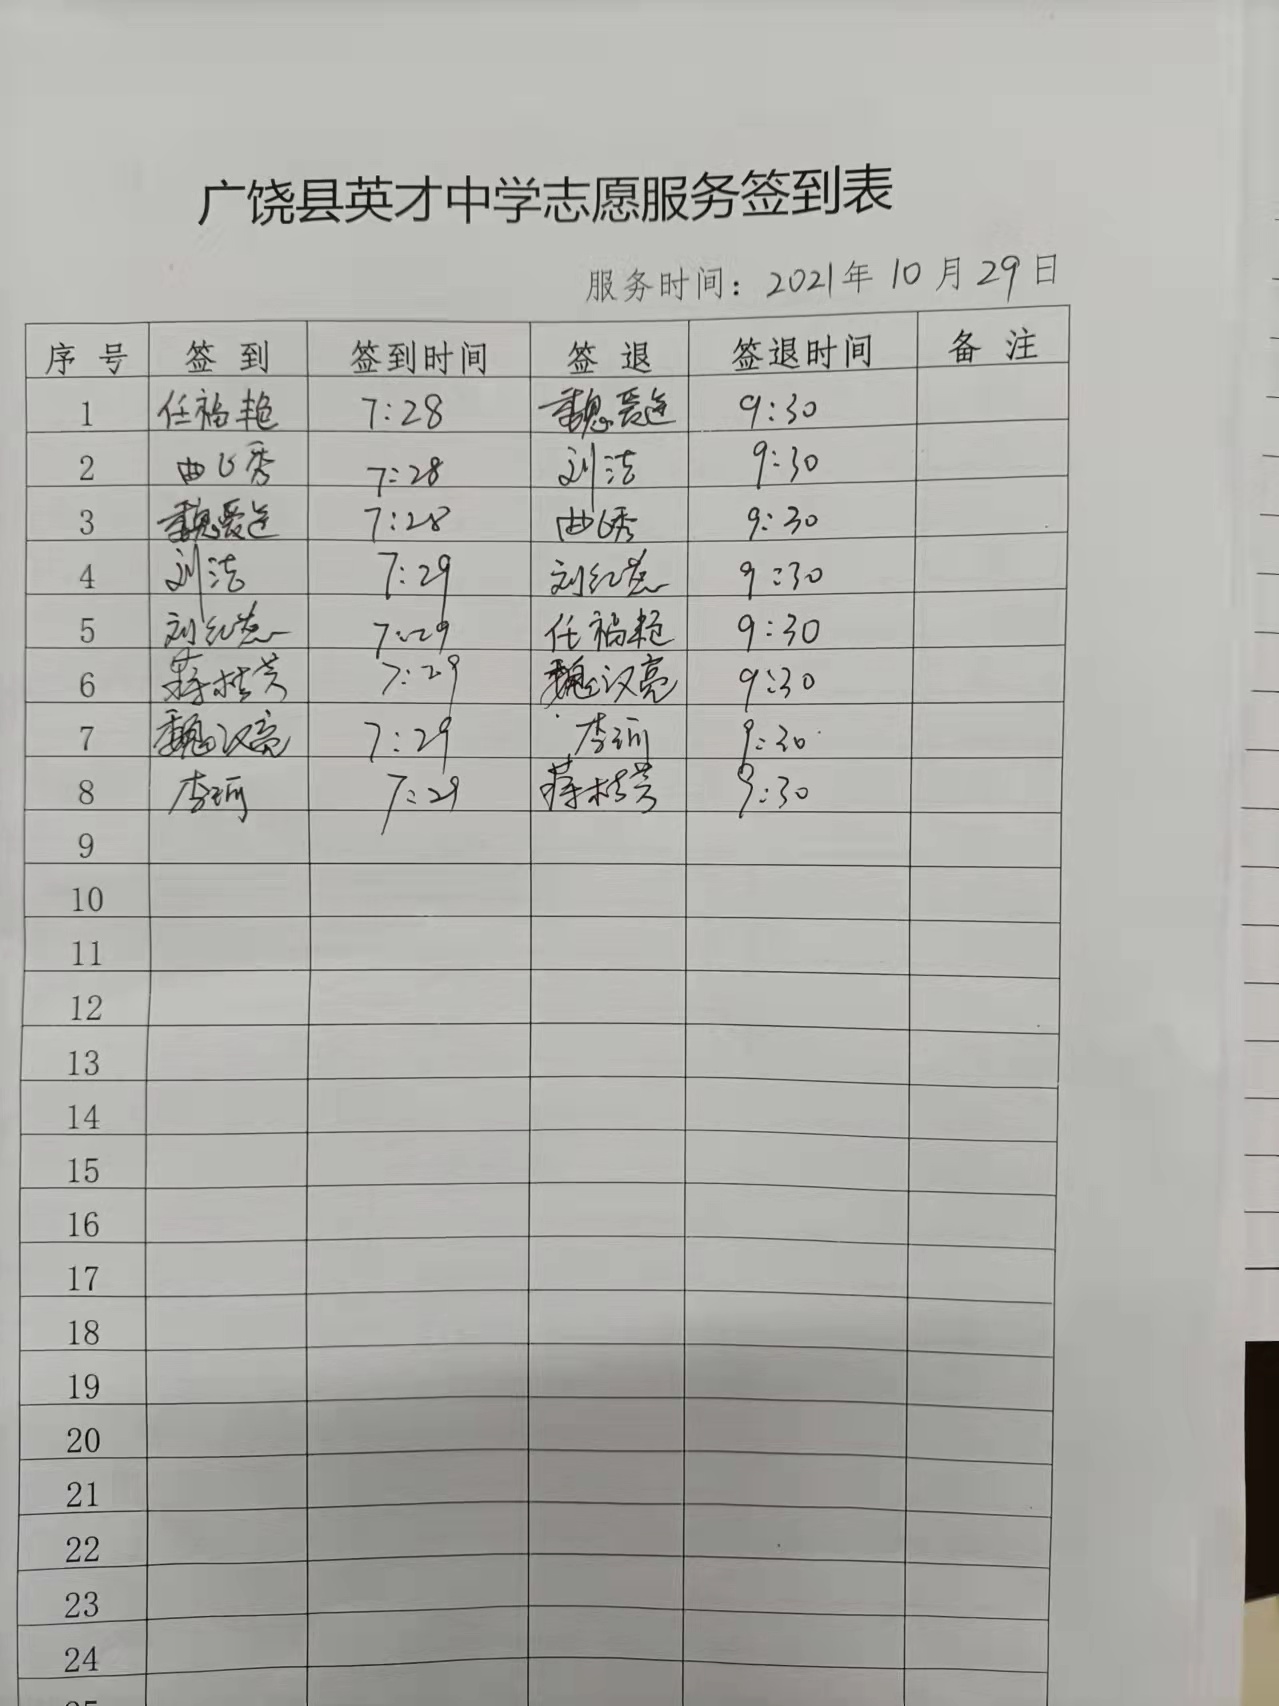 广饶县英才中学志愿服务签到表
服务时间：2021年10月29日
序号 签到 签到时间 签退 签退时间 备注
1 任福艳 7:28 魏爱莲 9:30
2 曲飞秀 7:28 刘洁 9:30
3 魏爱莲 7:28 曲飞秀 9:30
4 刘洁 7:29 刘红 9:30
5 刘红 7:29 任福艳 9:30
6 蒋桂芳 7:29 魏汉亮 9:30
7 魏汉亮 7:29 李 9:30
8 李 7:29 蒋桂芳 9:30
9
10
11
12
13
14
15
16
17
18
19
20
21
22
23
24